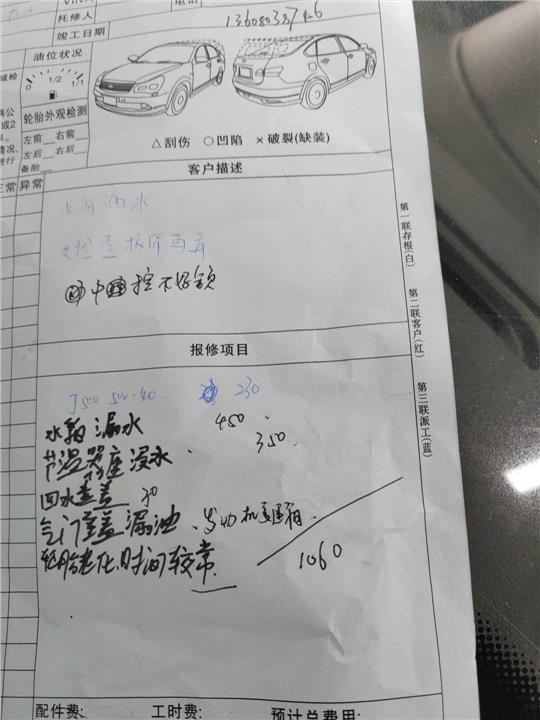 托修人
电话
竣工日期
油位状况
1/2 1/1
轮胎外观检测
左前__右前__
左后__右后__
备胎__
正常 异常
△刮伤 ○凹陷 ×破裂(缺装)
客户描述
水箱漏水
先检查报价再弃
中控不好锁
第一联存根(白)
第二联客户(红)
第三联派工(蓝)
报修项目
J500 5W-40 230
水箱漏水 450
节温器座浸水 350
回水壶盖 30
气门室盖漏油
轮胎老化,时间较常
1060
配件费:
工时费:
预计总费用: